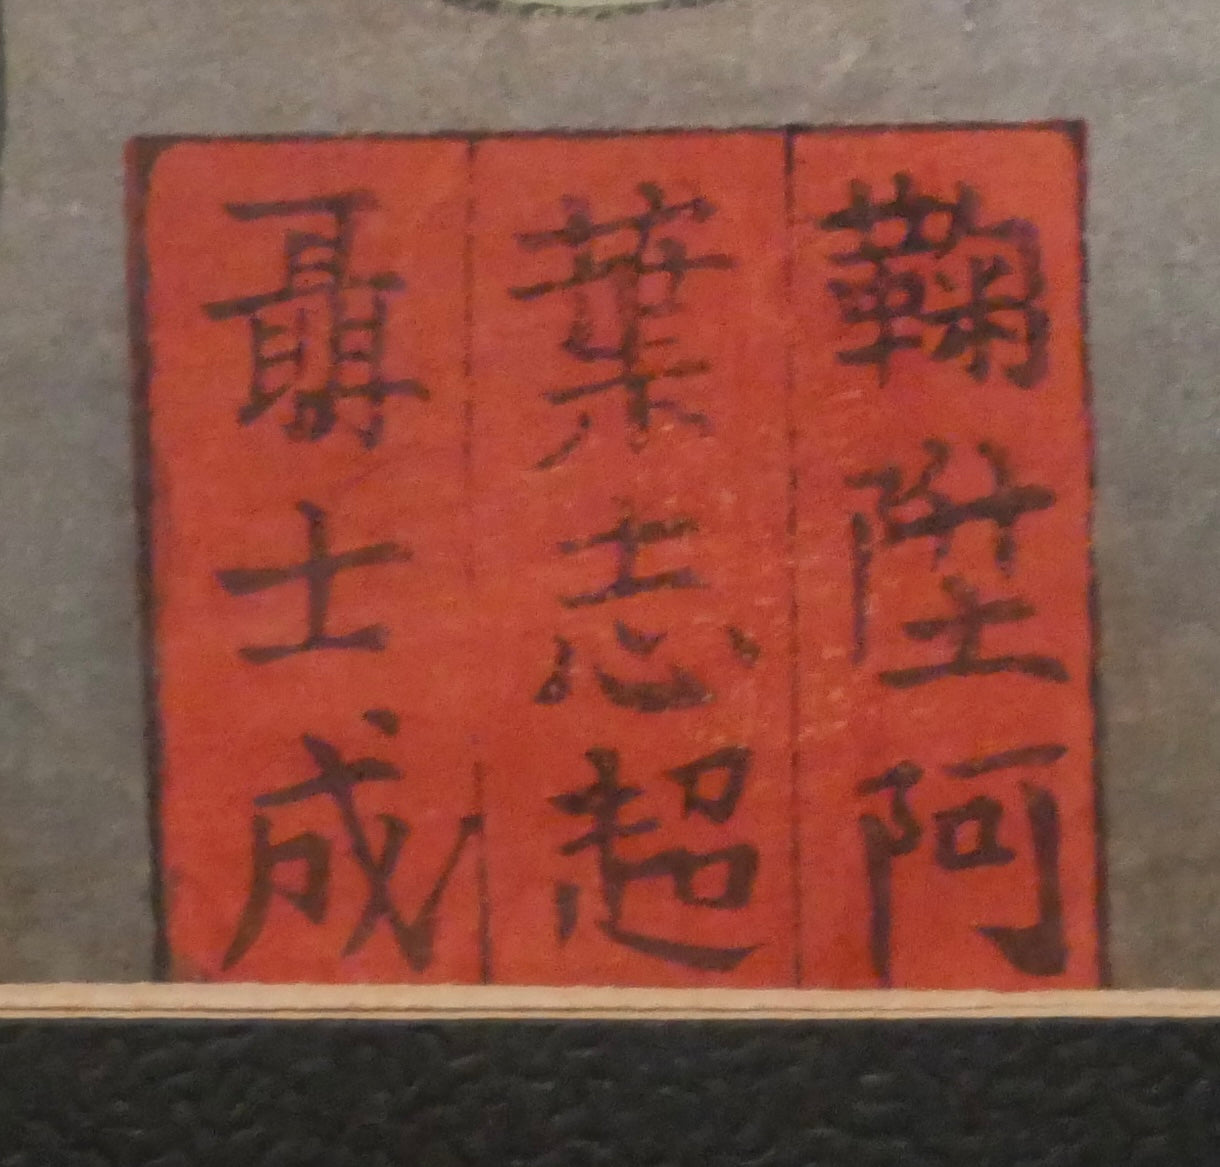 鞠陞阿
葉志超
聶士成